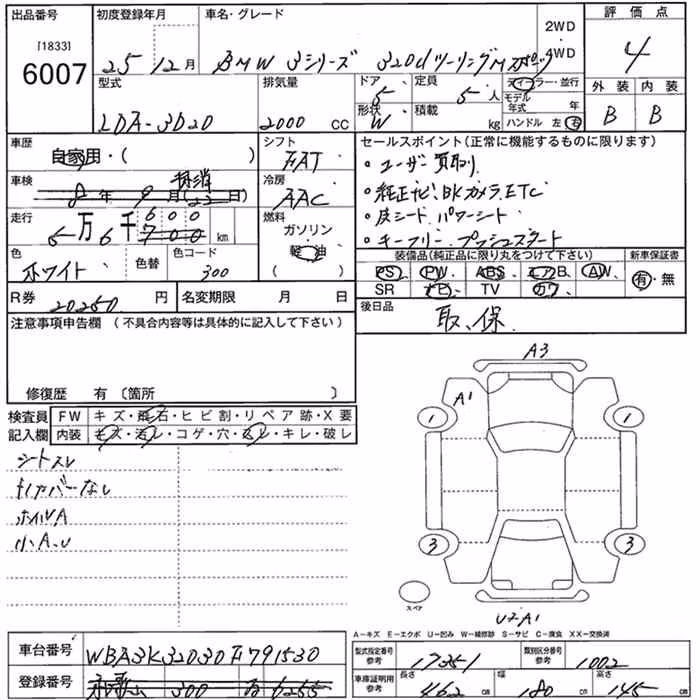 出品番号
[1833]
6007
初度登録年月
25 年 12 月
車名・グレード
BMW 3シリーズ 320dツーリングMスポーツ
2WD
4WD
評価点
4
型式
LDA-3D20
排気量
2000 CC
ドア
5
形状
W
定員
5 人
積載
kg
ディーラー・並行
モデル年式 年
ハンドル 左 右
外装 内装
B B
車歴
自家用・( )
シフト
FAT
車検
抹消
8年 9月(22日)
冷房
AAC
走行
5万6千600
700
km
燃料
ガソリン
軽油
( )
色
ホワイト
色替
色コード
300
R券 20250 円
名変期限 月 日
セールスポイント(正常に機能するものに限ります)
・ユーザー買取り
・純正ナビ、BKカメラ、ETC
・皮シート パワーシート
・キーフリー、プッシュスタート
装備品(純正品に限り丸をつけて下さい)
新車保証書
PS PW ABS エアB AW
SR ナビ TV カワ
有・無
後日品
取、保
注意事項申告欄 (不具合内容等は具体的に記入して下さい)
修復歴 有 〔箇所 〕
検査員
記入欄
FW キズ・飛石・ヒビ割・リペア跡・X要
内装 キズ・汚レ・コゲ・穴・スレ・キレ・破レ
シートスレ
トノカバーなし
ホイルA
小A、U
A3
A1
1
1
3
3
スペア
U2A1
A－キズ E－エクボ U－凹み W－補修跡 S－サビ C－腐食 XX－交換済
車台番号 WBA3K32030F791530
登録番号
300
6255
型式指定番号
参考
17351
類別区分番号
参考
1002
車庫証明用
参考
長さ 462 cm
幅 180 cm
高さ 145 cm